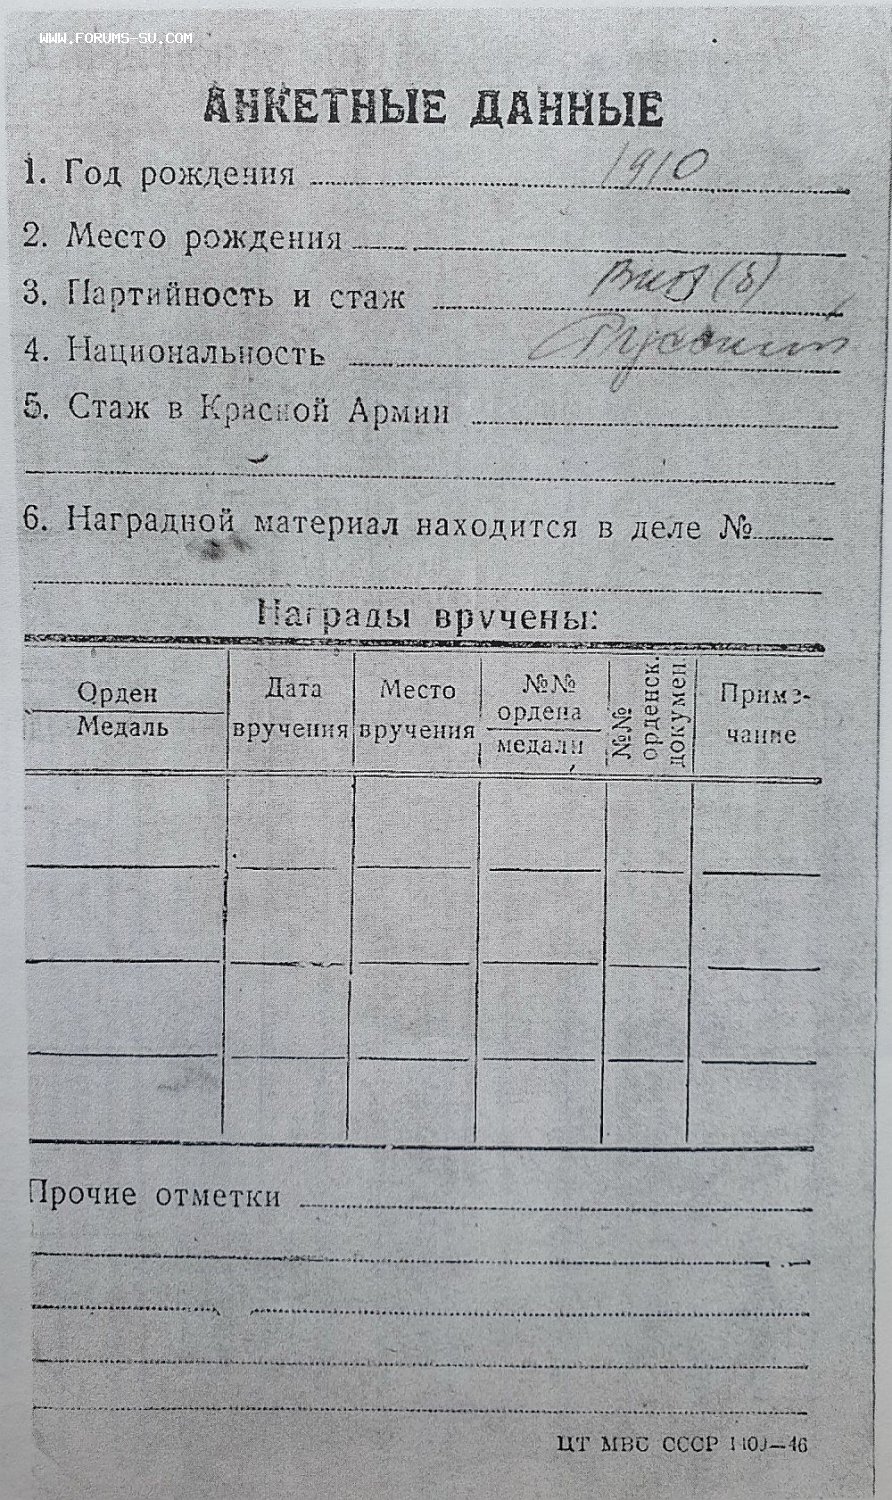 WWW.FORUMS-SU.COM
АНКЕТНЫЕ ДАННЫЕ
1. Год рождения 1910
2. Место рождения
3. Партийность и стаж ВКП(б)
4. Национальность Русский
5. Стаж в Красной Армии
6. Наградной материал находится в деле №
Награды вручены:
Орден
Медаль
Дата
вручения
Место
вручения
№№
ордена
медали
№№
орденск.
докумен.
Приме-
чание
Прочие отметки
ЦТ МВС СССР